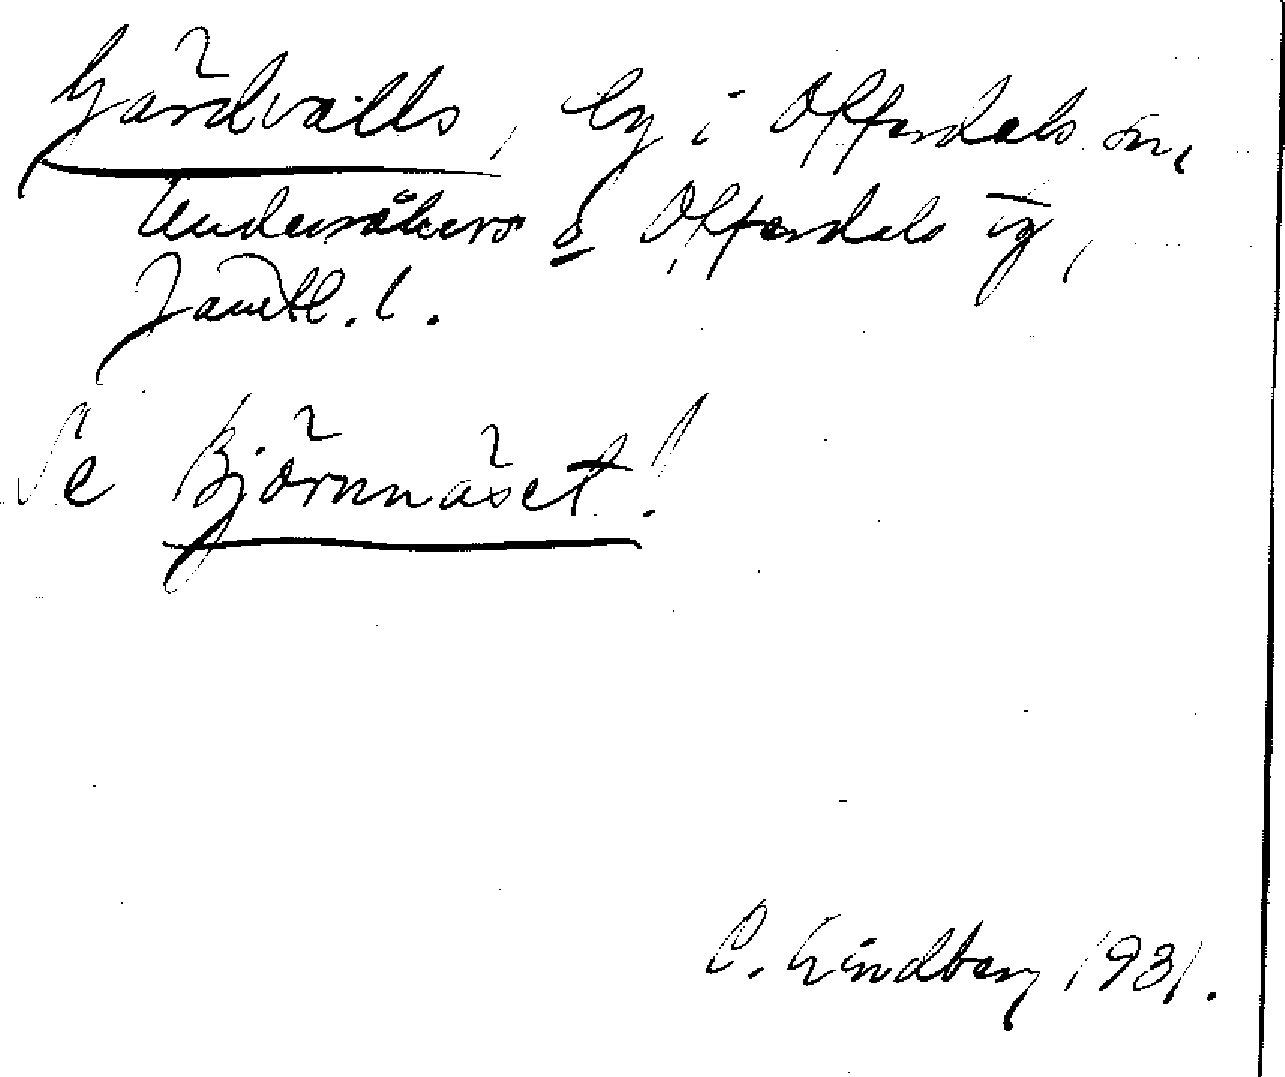 Gärdvälls, by i Offerdals sn,
Undersåkers o Offerdals tg,
Jämtl. l.
Se Björnnäset!
C. Lindberg 1931.